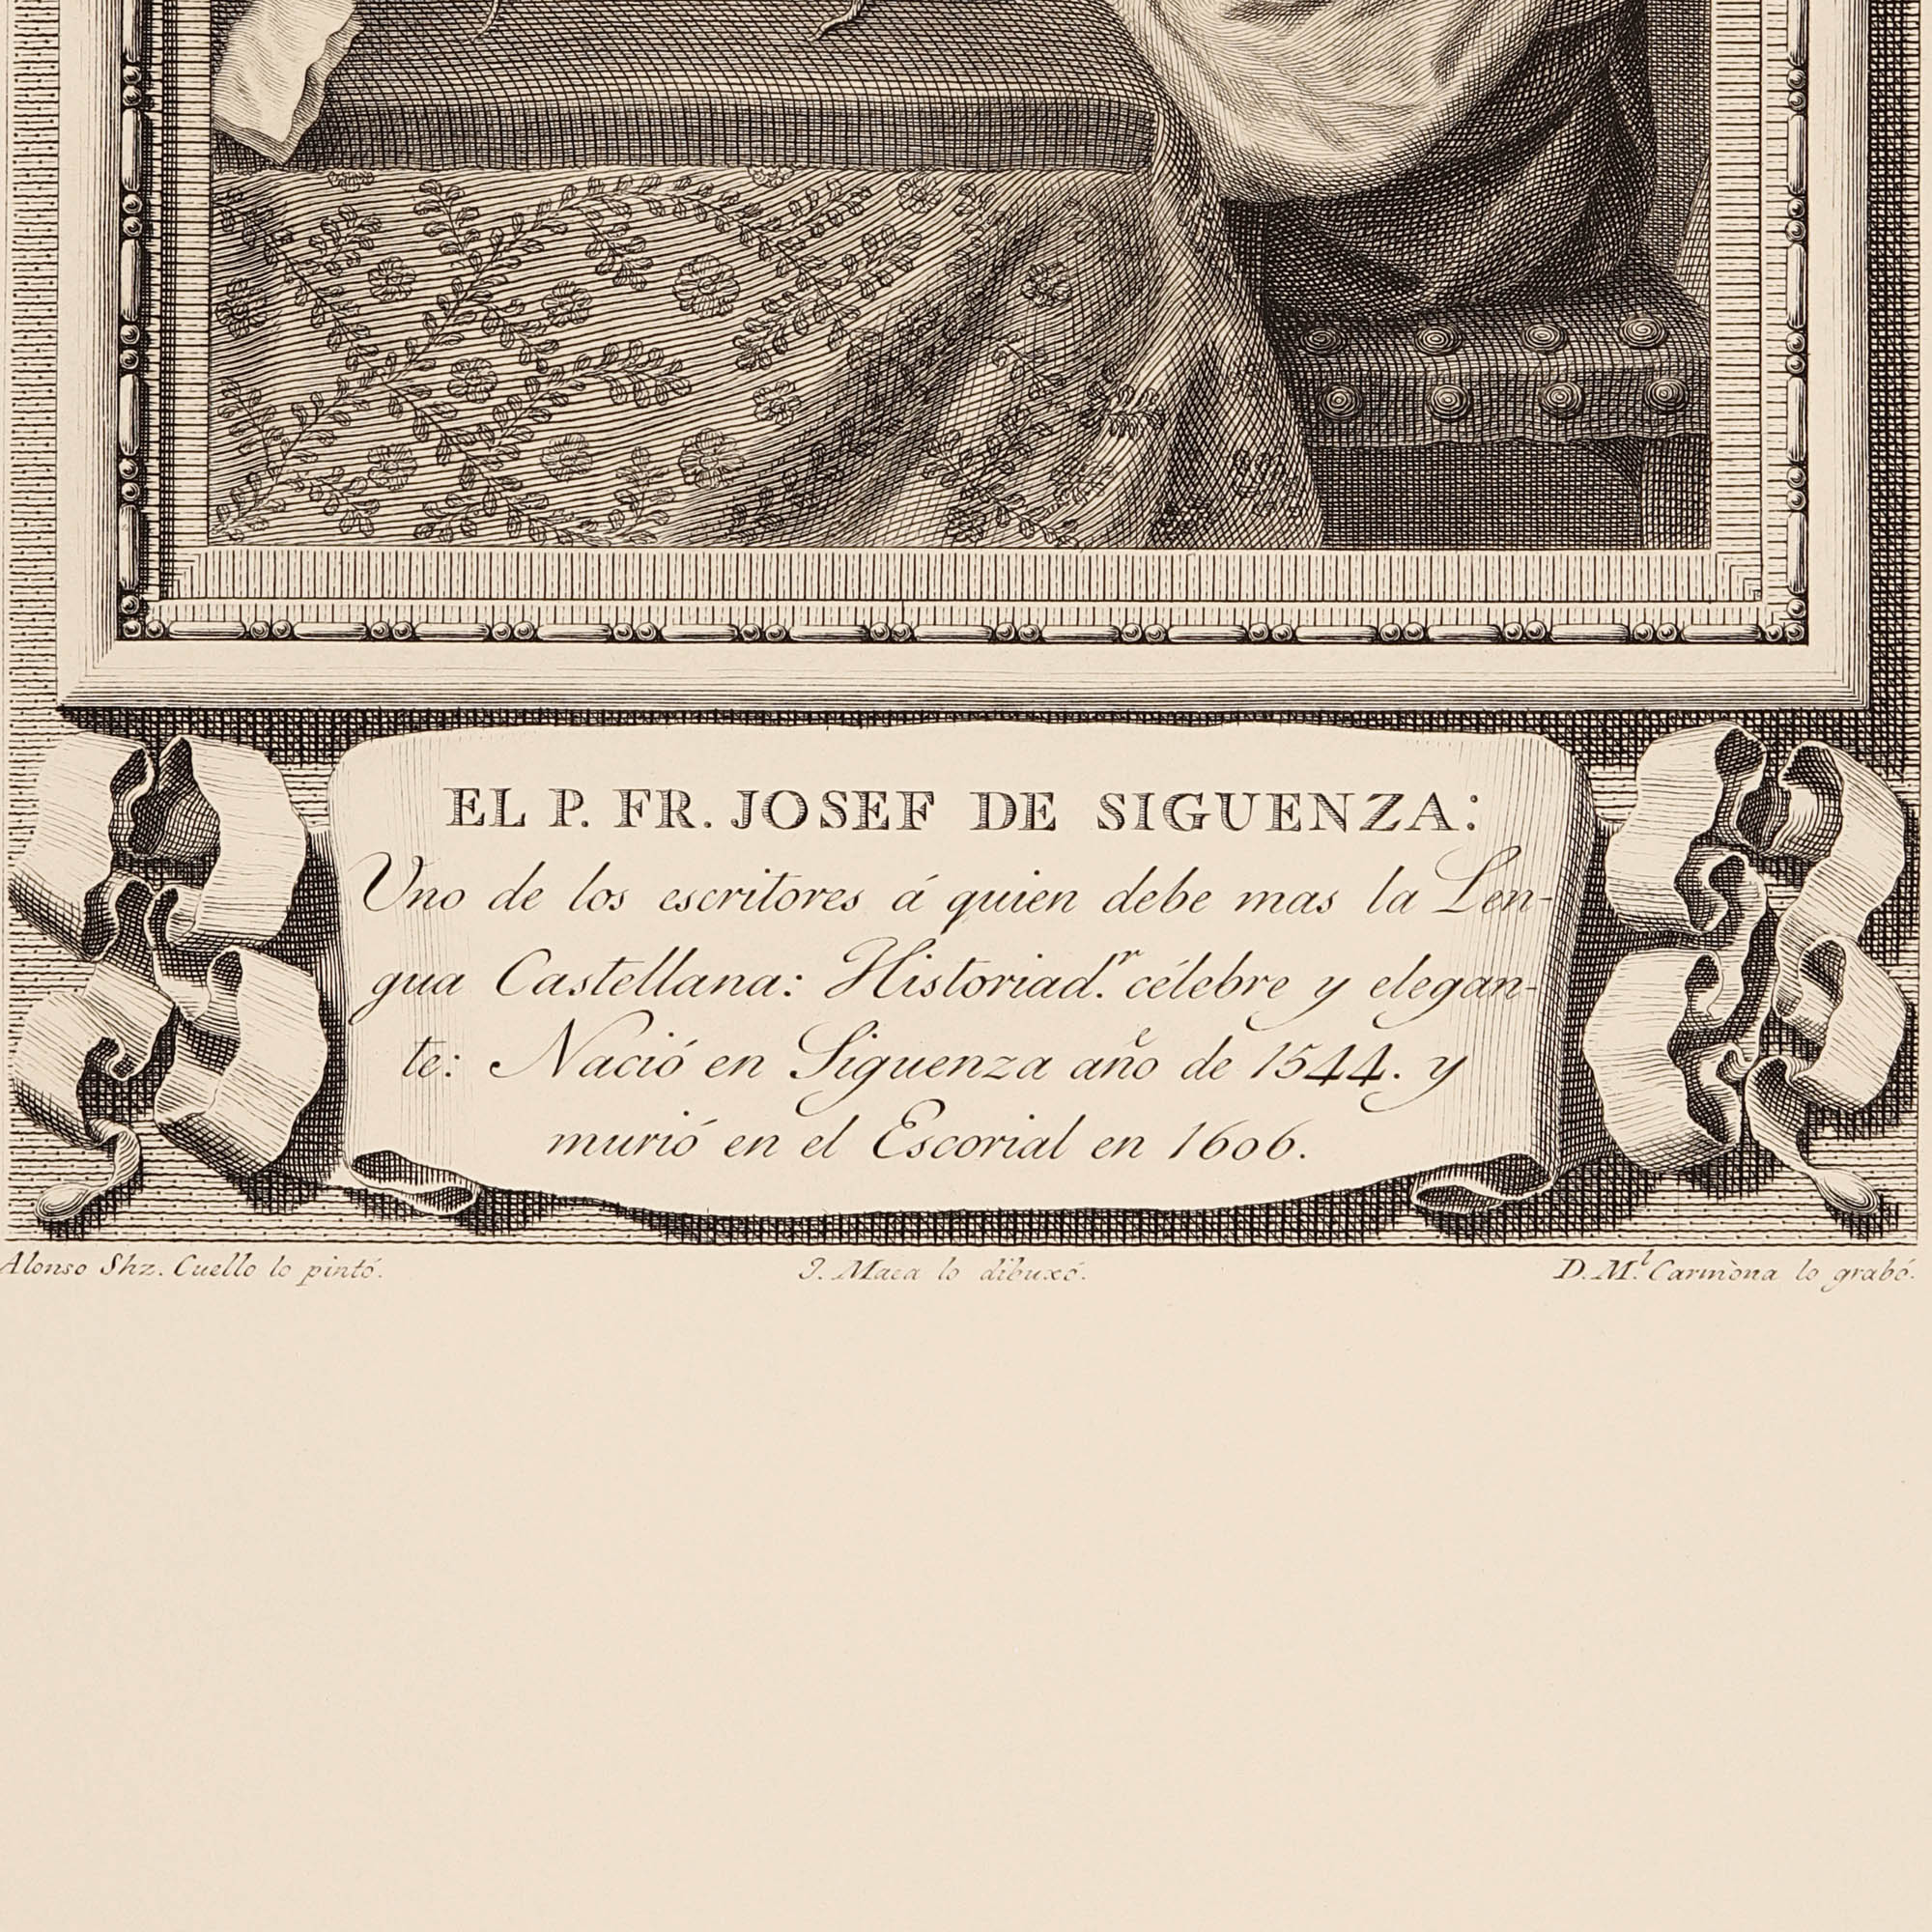 EL P. FR. JOSEF DE SIGUENZA:
Uno de los escritores á quien debe mas la Len-
gua Castellana: Historiad.r célebre y elegan-
te: Nació en Siguenza año de 1544. y
murió en el Escorial en 1606.
Alonso Shz. Cuello lo pintó. J. Maea lo dibuxó. D. M.l Carmona lo grabó.